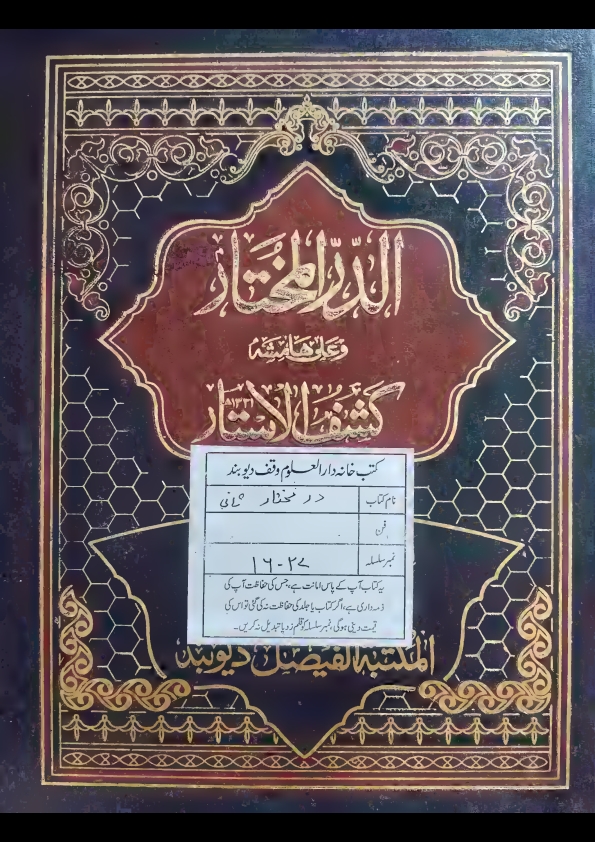 الدر المختار
وعلى هامشه
كشف الأستار
۱۳۲۱ھ
کتب خانہ دارالعلوم وقف دیوبند
نام کتاب در مختار ثانی
فن
نمبر سلسلہ ۲۷-۱۶
یہ کتاب آپ کے پاس امانت ہے، جس کی حفاظت آپ کی
ذمہ داری ہے، اگر کتاب یا جلد کی حفاظت نہ کی گئی تو اس کی
قیمت دینی ہوگی، نمبر سلسلہ کو قلم زد یا تبدیل نہ کریں۔
المكتبة الفيصل ديوبند